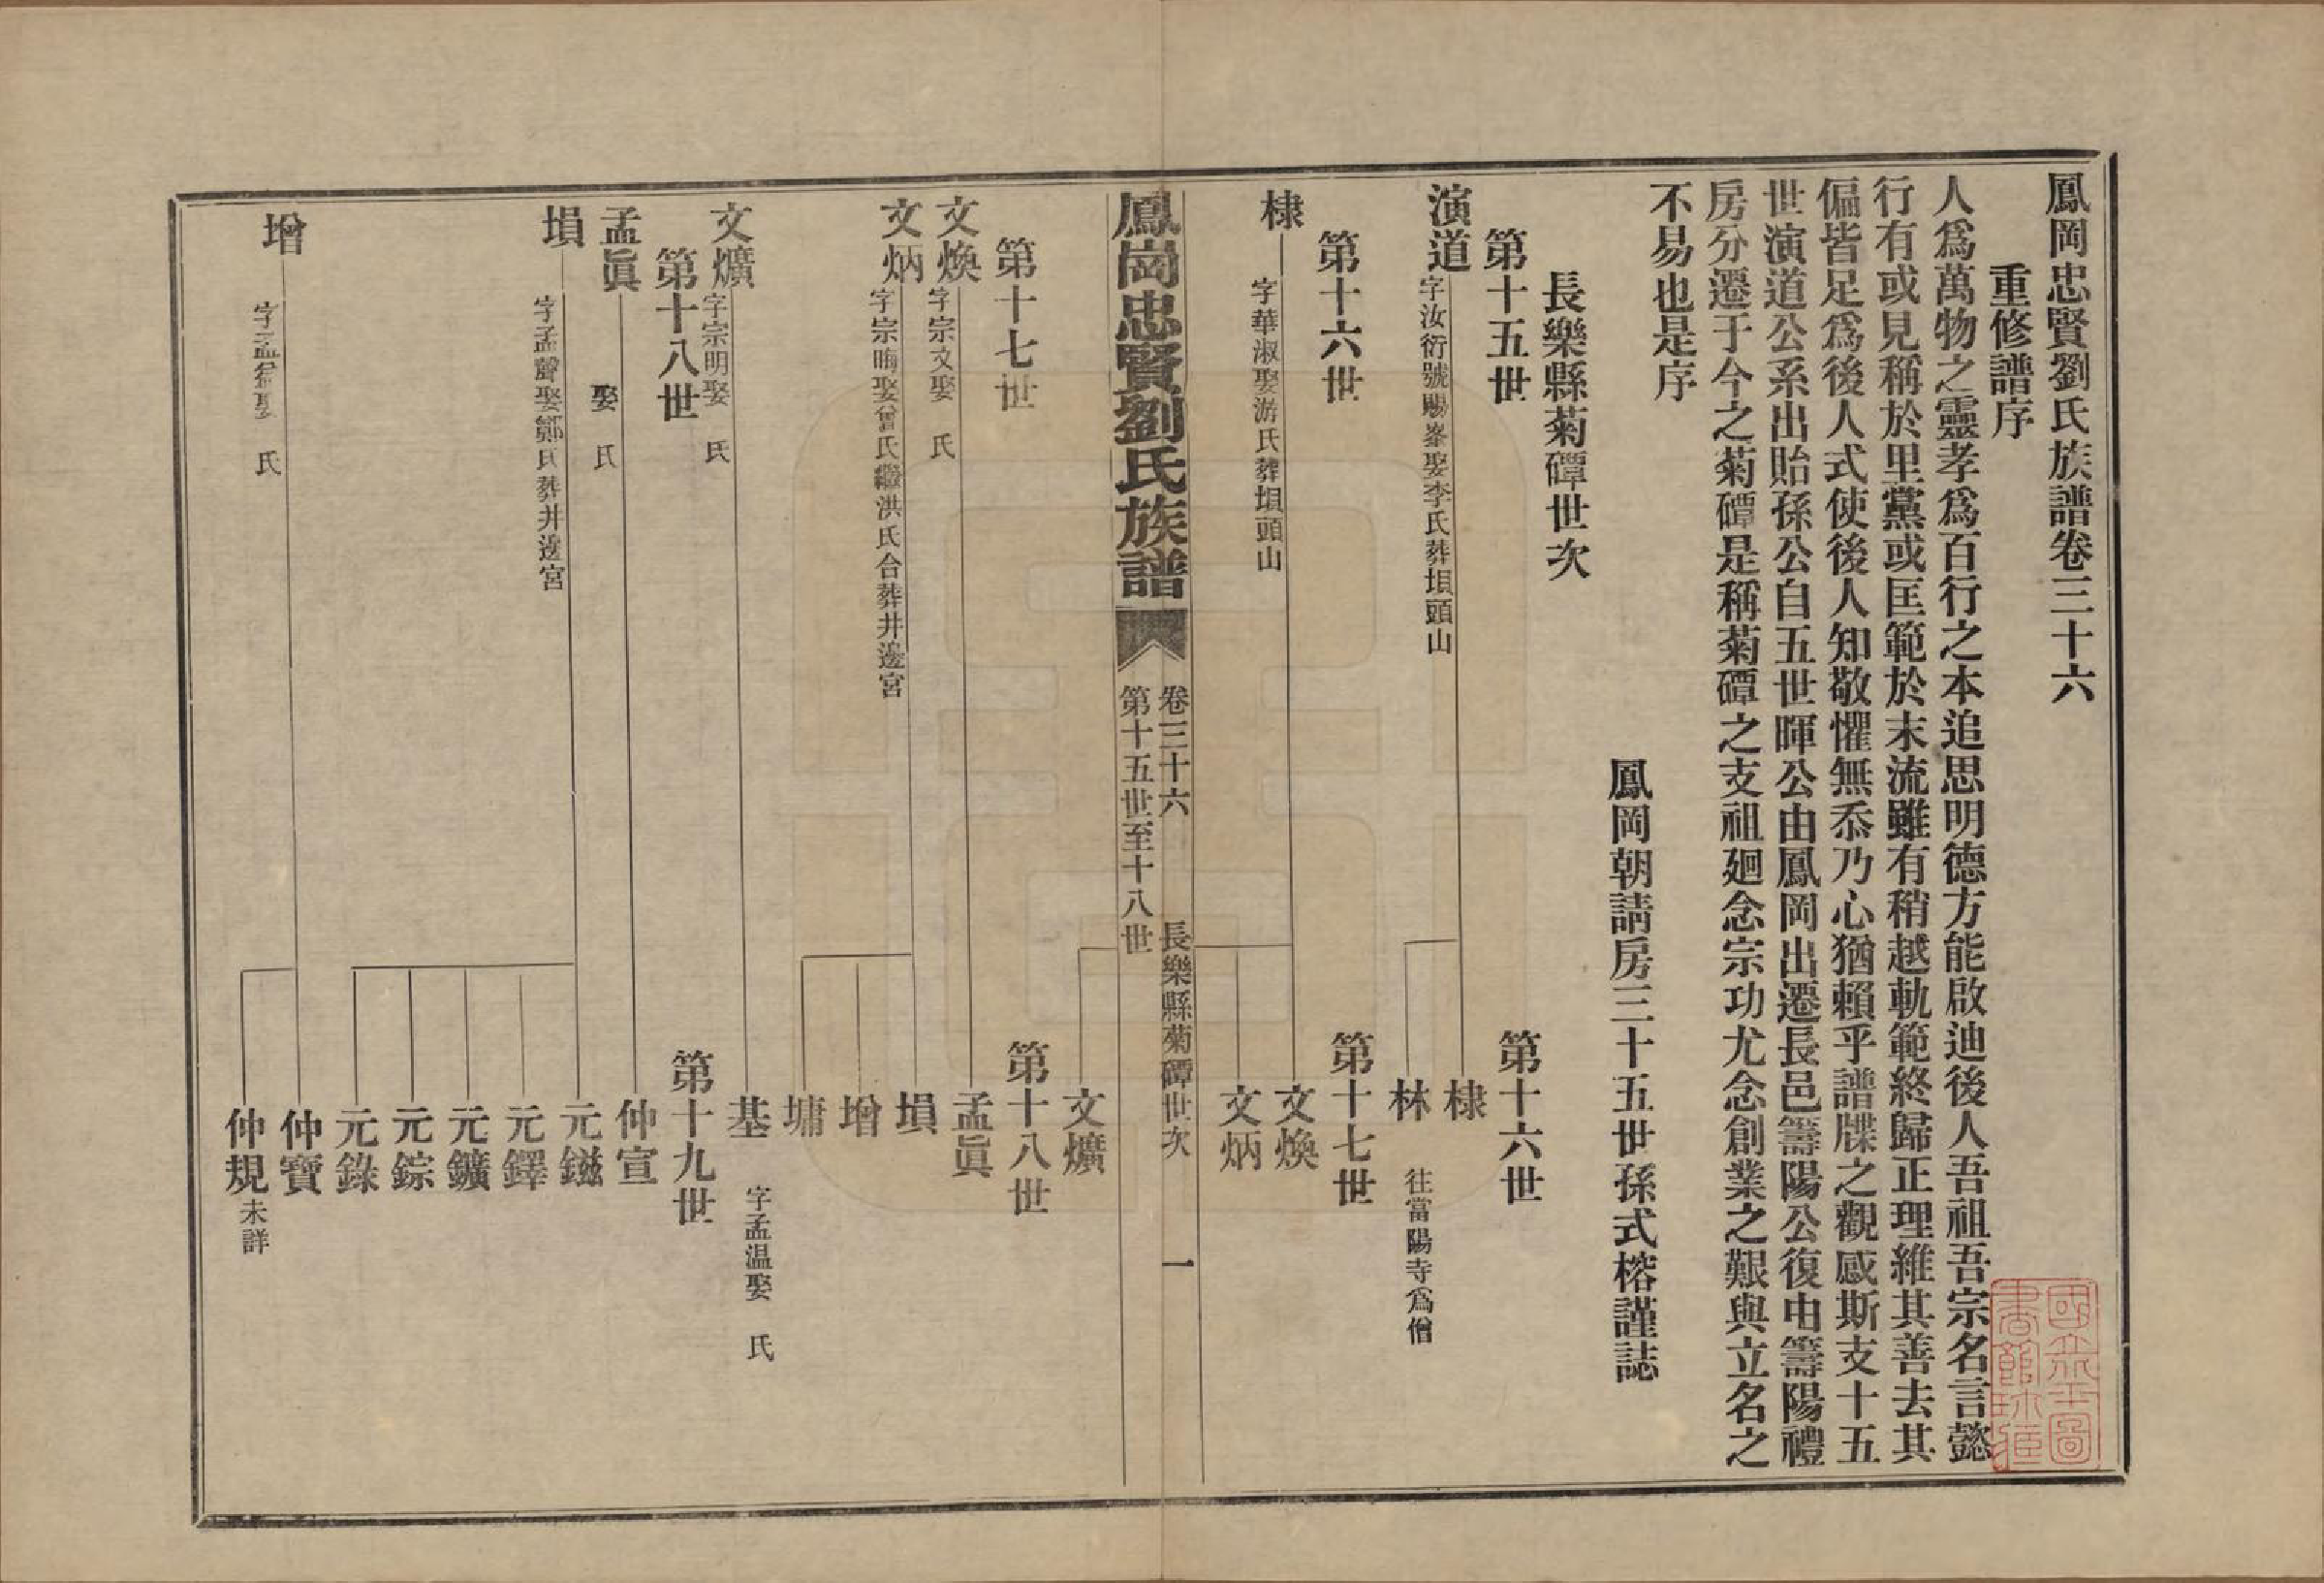 鳳岡忠賢劉氏族譜卷三十六
重修譜序
人爲萬物之靈孝爲百行之本追思明德方能啟迪後人吾祖吾宗名言懿
行有或見稱於里黨或匡範於末流雖有稍越軌範終歸正理維其善去其
偏皆足爲後人式使後人知敬懼無忝乃心猶賴乎譜牒之觀感斯支十五
世演道公系出貽孫公自五世暉公由鳳岡出遷長邑籌陽公復由籌陽禮
房分遷于今之菊磹是稱菊磹之支祖廻念宗功尤念創業之艱與立名之
不易也是序
鳳岡朝請房三十五世孫式榕謹誌
長樂縣菊磹世次
第十五世
第十六世
演道 字汝衍號賜峯娶李氏葬垻頭山
棣
林 往當陽寺爲僧
第十六世
第十七世
棣 字華淑娶游氏葬垻頭山
文煥
文炳
鳳崗忠賢劉氏族譜
卷三十六
長樂縣菊磹世次
一
第十五世至十八世
文爌
第十七世
第十八世
文煥 字宗文娶 氏
孟眞
文炳 字宗晦娶曾氏繼洪氏合葬井邊宮
塤
增
墉
文爌 字宗明娶 氏
基 字孟温娶 氏
第十八世
第十九世
孟眞 娶 氏
仲宣
塤 字孟聲娶鄭氏葬井邊宮
元鎡
元鐸
元鑛
元錝
元錄
增 字孟 娶 氏
仲寶
仲規 未詳